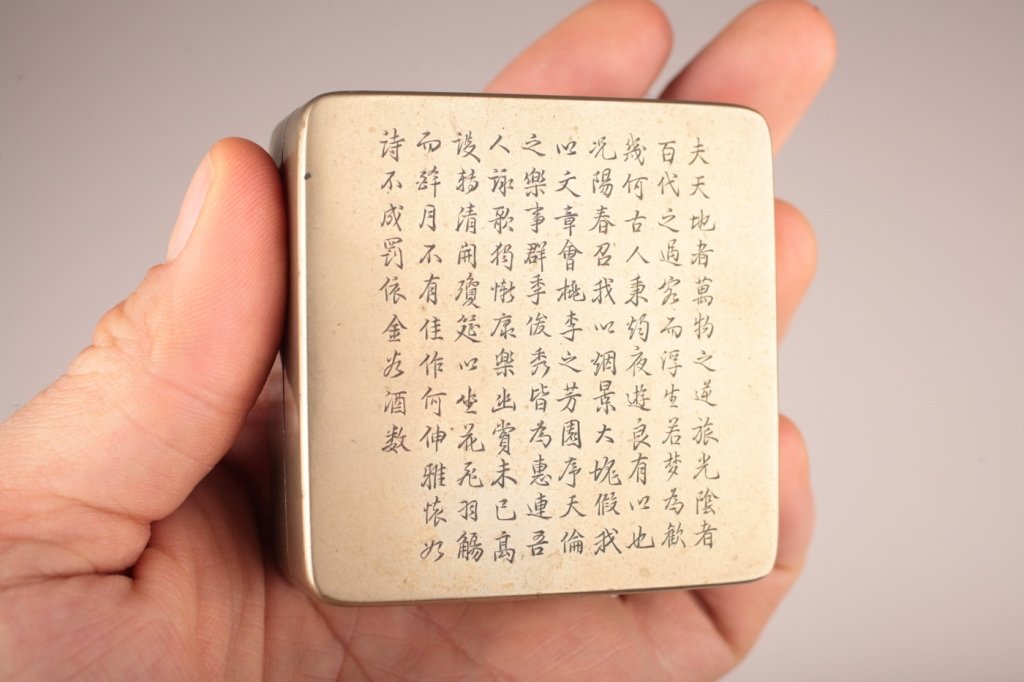 夫天地者萬物之逆旅光陰者
百代之過客而浮生若梦為歡
幾何古人秉燭夜遊良有以也
况陽春召我以烟景大塊假我
以文章會桃李之芳園序天倫
之樂事群季俊秀皆為惠連吾
人詠歌獨慚康樂幽賞未已高
設轉清開瓊筵以坐花飛羽觴
而醉月不有佳作何伸雅懷如
詩不成罰依金谷酒数